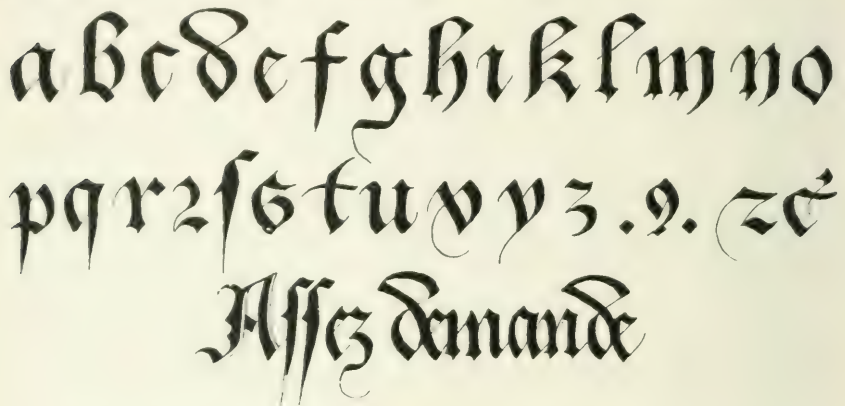 a b c d e f g h ı k l m n o
p q r ꝛ ſ s t u v y z . 9 . ⁊c̓
Aſſez demande